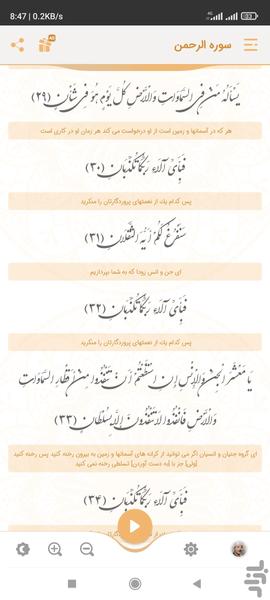 8:47 | 0.2KB/s
سوره الرحمن
يَسْأَلُهُ مَنْ فِي السَّمَاوَاتِ وَالْأَرْضِ كُلَّ يَوْمٍ هُوَ فِي شَأْنٍ (۲۹)
هر که در آسمانها و زمین است از او درخواست می کند هر زمان او در کاری است
فَبِأَيِّ آلَاءِ رَبِّكُمَا تُكَذِّبَانِ (۳۰)
پس کدام یک از نعمتهای پروردگارتان را منکرید
سَنَفْرُغُ لَكُمْ أَيُّهَ الثَّقَلَانِ (۳۱)
ای جن و انس زودا که به شما بپردازیم
فَبِأَيِّ آلَاءِ رَبِّكُمَا تُكَذِّبَانِ (۳۲)
پس کدام یک از نعمتهای پروردگارتان را منکرید
يَا مَعْشَرَ الْجِنِّ وَالْإِنْسِ إِنِ اسْتَطَعْتُمْ أَنْ تَنْفُذُوا مِنْ أَقْطَارِ السَّمَاوَاتِ
وَالْأَرْضِ فَانْفُذُوا لَا تَنْفُذُونَ إِلَّا بِسُلْطَانٍ (۳۳)
ای گروه جنیان و انسیان اگر می توانید از کرانه های آسمانها و زمین به بیرون رخنه کنید پس رخنه کنید
[ولی] جز با [به دست آوردن] تسلطی رخنه نمی کنید
فَبِأَيِّ آلَاءِ رَبِّكُمَا تُكَذِّبَانِ (۳۴)
بازار